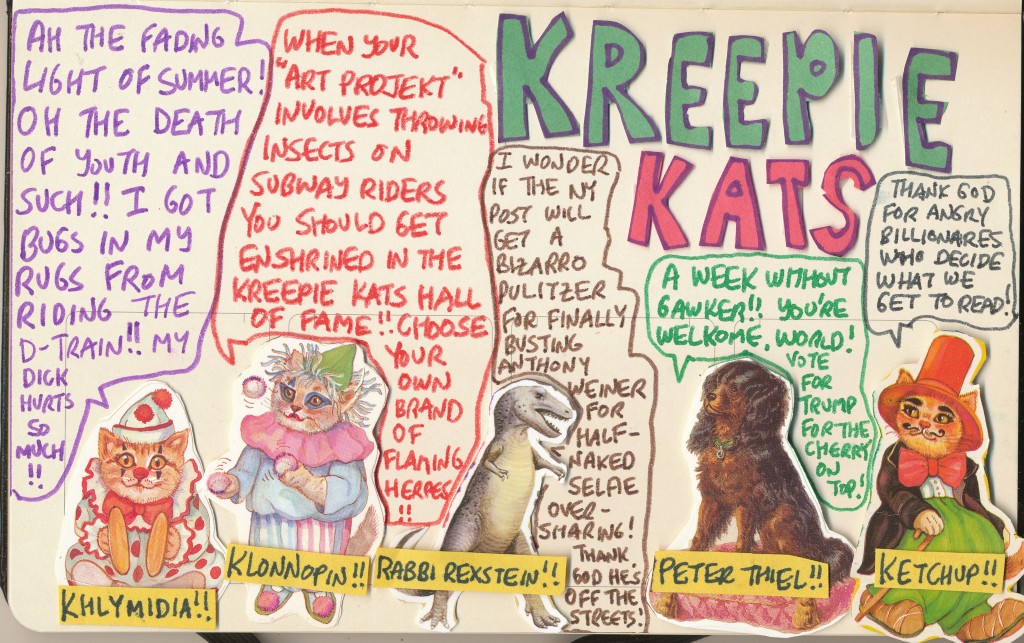 KREEPIE
KATS
AH THE FADING
LIGHT OF SUMMER!
OH THE DEATH
OF YOUTH AND
SUCH!! I GOT
BUGS IN MY
RUGS FROM
RIDING THE
D-TRAIN!! MY
DICK
HURTS
SO
MUCH
!!
WHEN YOUR
"ART PROJEKT"
INVOLVES THROWING
INSECTS ON
SUBWAY RIDERS
YOU SHOULD GET
ENSHRINED IN THE
KREEPIE KATS HALL
OF FAME!! CHOOSE
YOUR
OWN
BRAND
OF
FLAMING
HERPES
!!
I WONDER
IF THE NY
POST WILL
GET A
BIZARRO
PULITZER
FOR FINALLY
BUSTING
ANTHONY
WEINER
FOR
HALF-
NAKED
SELFIE
OVER-
SHARING!
THANK
GOD HES
OFF THE
STREETS!
A WEEK WITHOUT
GAWKER!! YOU'RE
WELCOME, WORLD!
VOTE
FOR
TRUMP
FOR THE
CHERRY
ON
TOP!
THANK GOD
FOR ANGRY
BILLIONAIRES
WHO DECIDE
WHAT WE
GET TO READ!
KHLYMIDIA!!
KLONNOPIN!!
RABBI REXSTEIN!!
PETER THIEL!!
KETCHUP!!